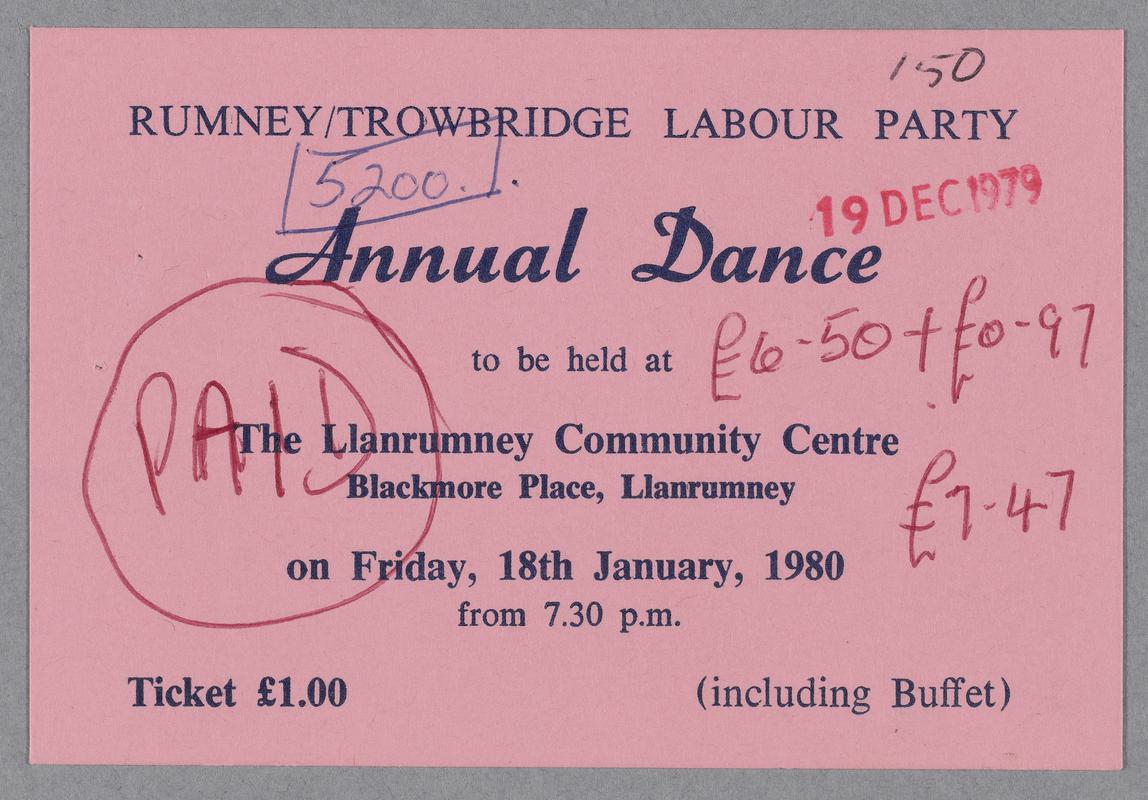 150
RUMNEY/TROWBRIDGE LABOUR PARTY
5200.
19 DEC 1979
Annual Dance
to be held at
£6-50 + £0-97
PAID
The Llanrumney Community Centre
Blackmore Place, Llanrumney
£7-47
on Friday, 18th January, 1980
from 7.30 p.m.
Ticket £1.00 (including Buffet)